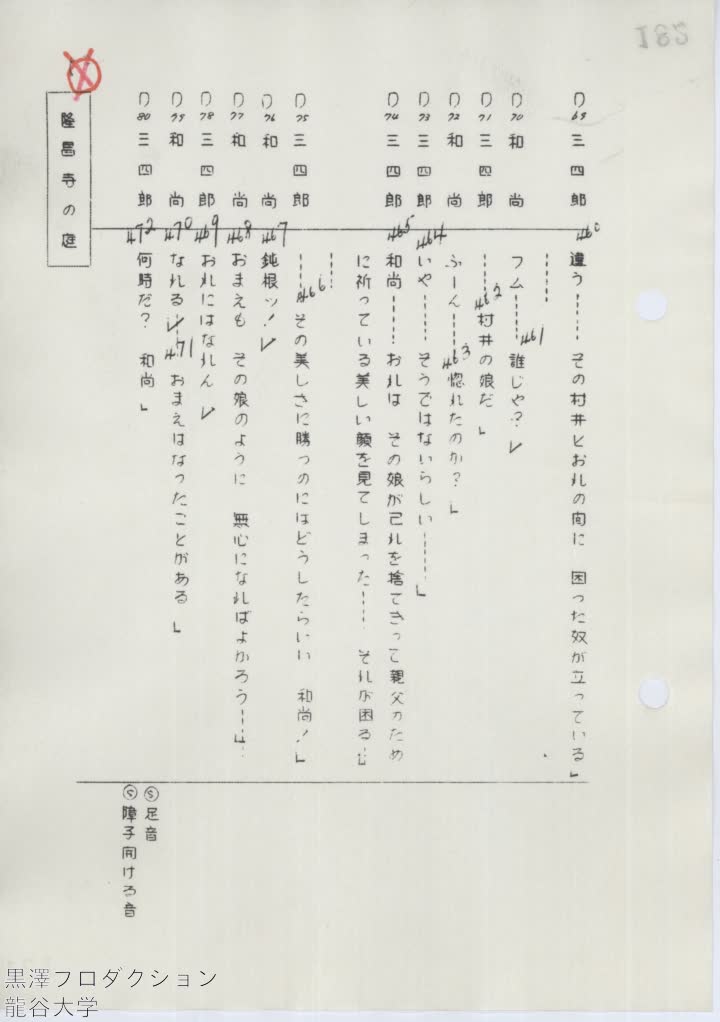 182
D69 三四郎 460 違う…… その村井とおれの間に 困った奴が立っている」
D70 和尚 フム…… 461 誰じゃ?」
D71 三四郎 …… 462 村井の娘だ」
D72 和尚 ふーん…… 463 惚れたのか?」
D73 三四郎 464 いや…… そうではないらしい……」
D74 三四郎 465 和尚…… おれは その娘が己れを捨てきって親父のため
に祈っている美しい顔を見てしまった…… それが困る…」
D75 三四郎 …… 466 その美しさに勝つのにはどうしたらいい 和尚!」
D76 和尚 467 鈍根ッ!」
D77 和尚 468 おまえも その娘のように 無心になればよかろう……」
D78 三四郎 469 おれにはなれん」
D79 和尚 470 なれる…… 471 おまえはなったことがある」
D80 三四郎 472 何時だ? 和尚」
Ⓢ足音
Ⓢ障子開ける音
隆昌寺の庭
黒澤プロダクション
龍谷大学